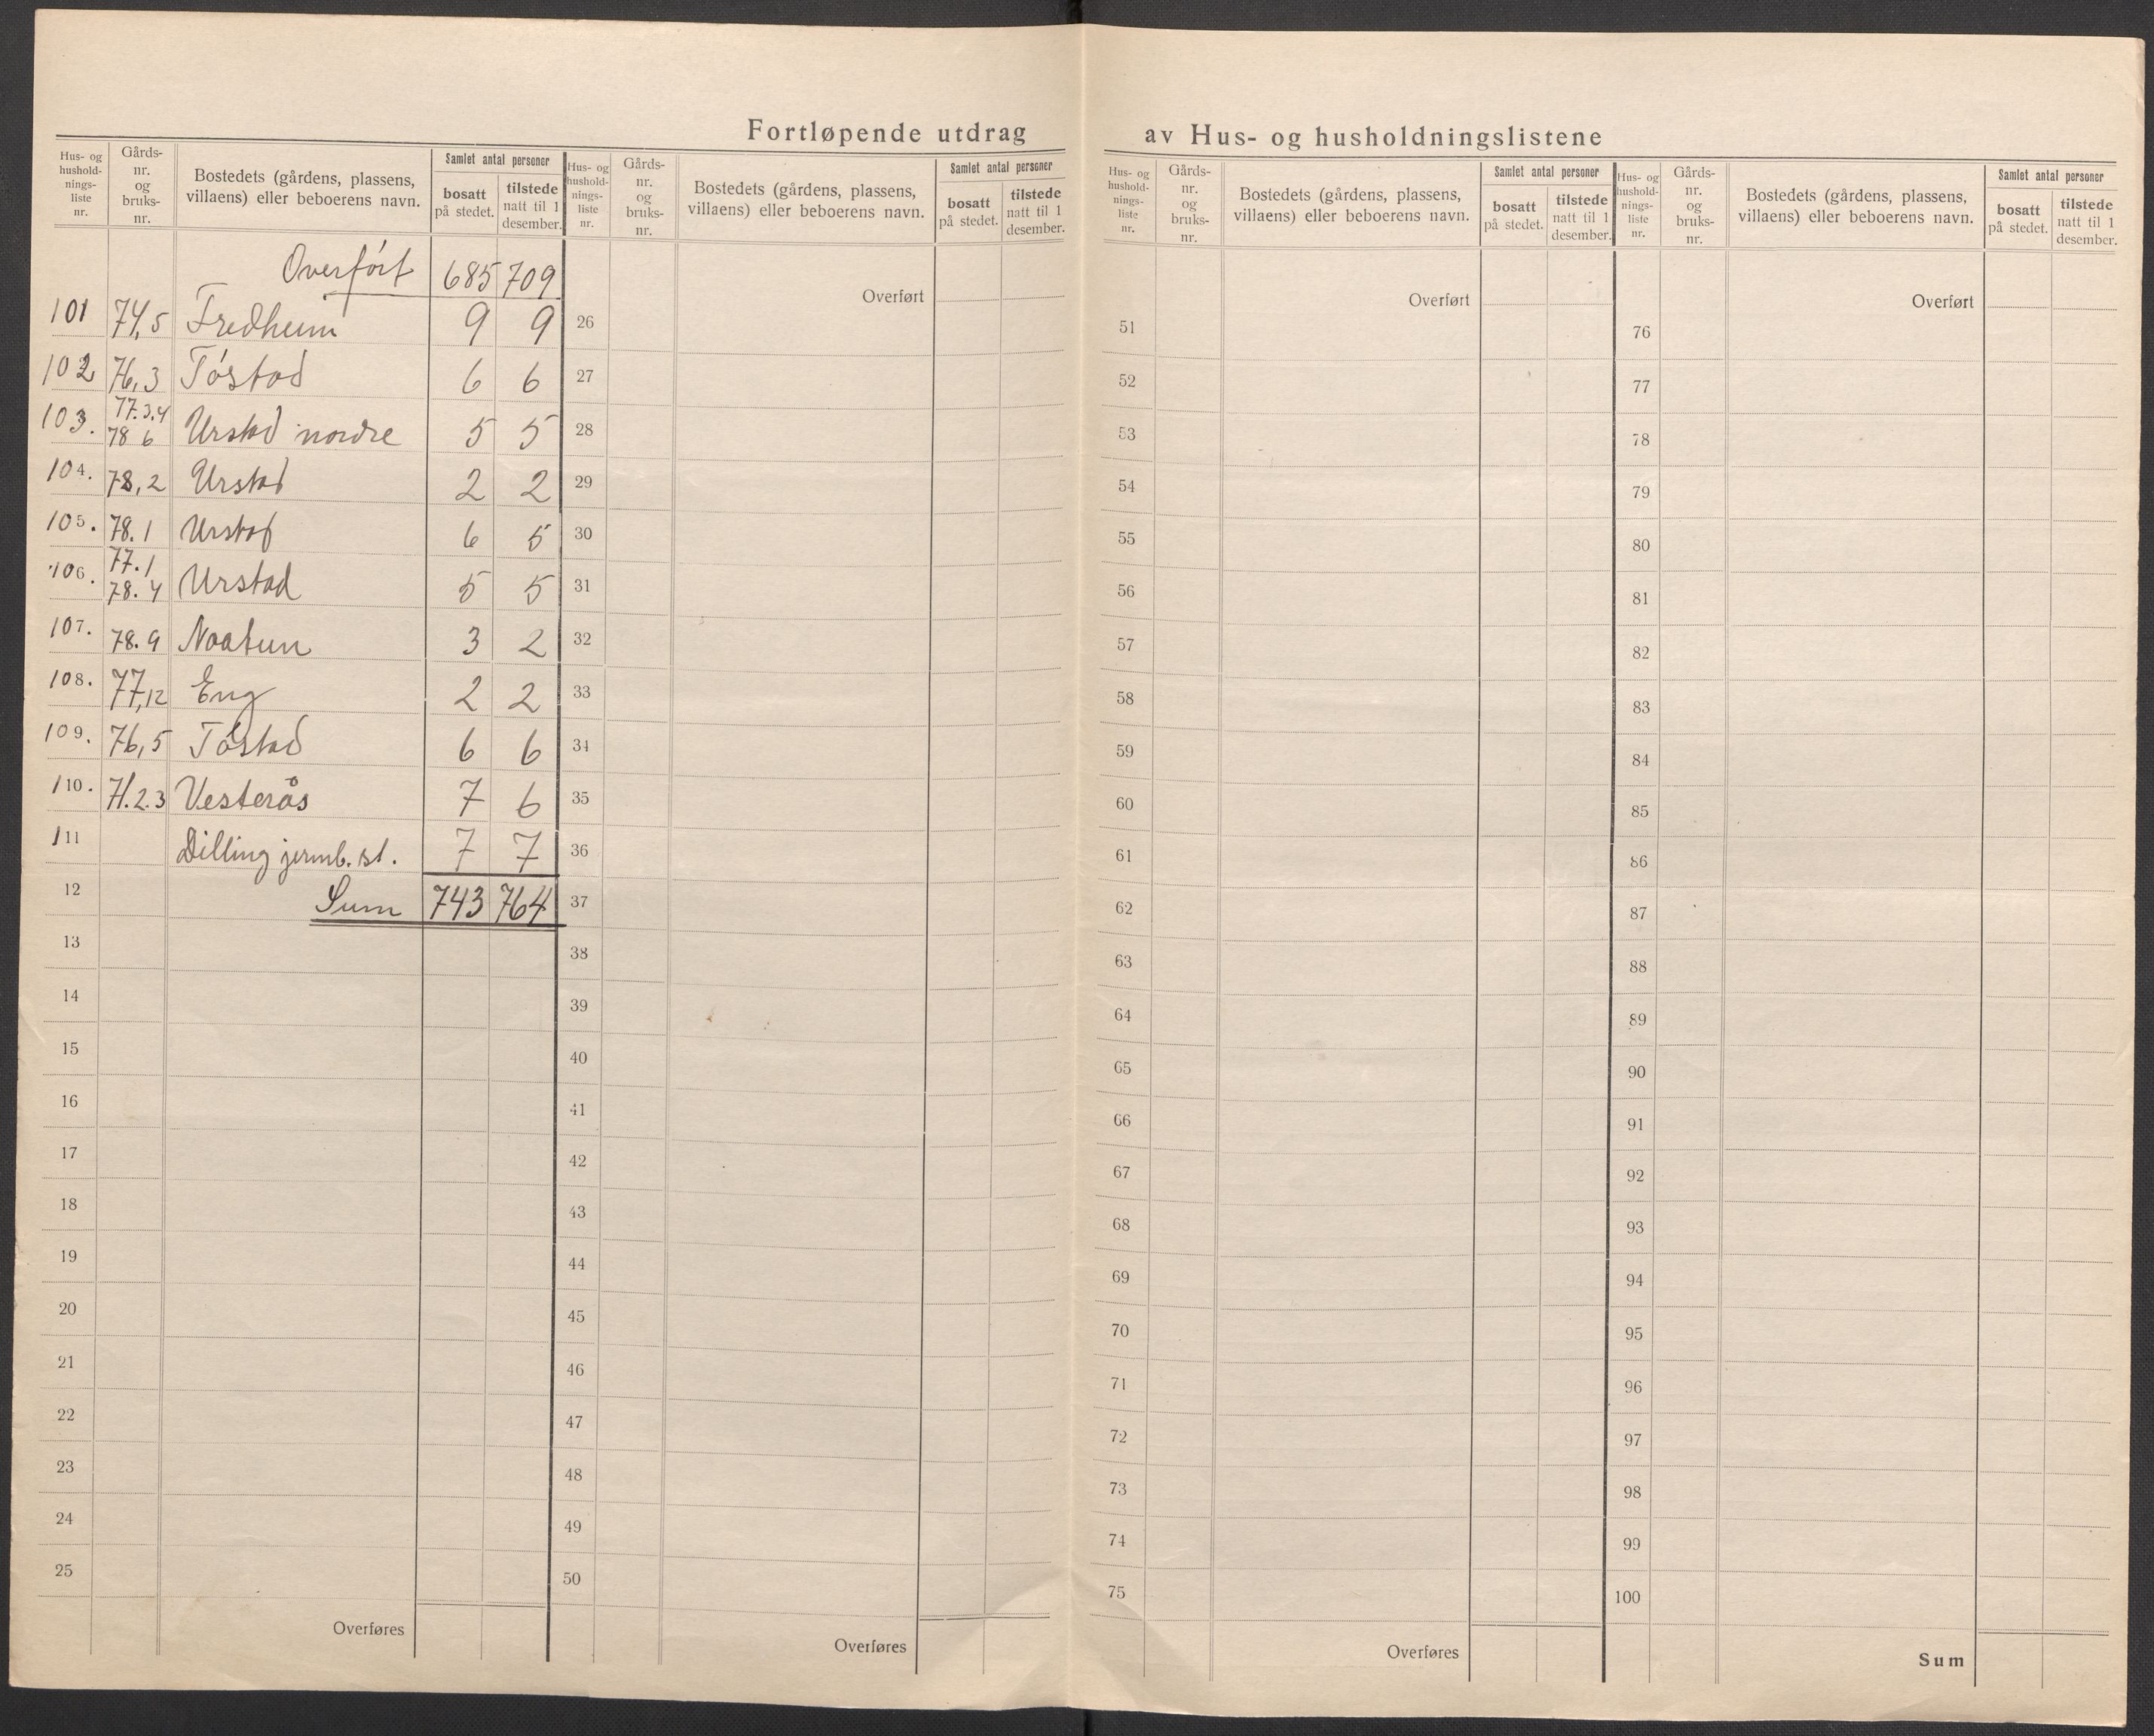 Fortløpende utdrag av Hus- og husholdningslistene
Hus- og hushold-nings-liste nr. Gårds-nr. og bruks-nr. Bostedets (gårdens, plassens, villaens) eller beboerens navn. Samlet antal personer bosatt på stedet. tilstede natt til 1 desember.
Overført 685 709
101 74,5 Fredheim 9 9
102 76,3 Tøstad 6 6
103. 77.3.4 78 6 Urstad nordre 5 5
104. 78,2 Urstad 2 2
105. 78.1 Urstad 6 5
106. 77.1 78.4 Urstad 5 5
107. 78.9 Noatun 3 2
108. 77,12 Eng 2 2
109. 76,5 Tøstad 6 6
110. 71.2.3 Vesterås 7 6
111 Dilling jernb. st. 7 7
12 Sum 743 764
13
14
15
16
17
18
19
20
21
22
23
24
25
Overføres
Hus- og hushold-nings-liste nr. Gårds-nr. og bruks-nr. Bostedets (gårdens, plassens, villaens) eller beboerens navn. Samlet antal personer bosatt på stedet. tilstede natt til 1 desember.
Overført
26
27
28
29
30
31
32
33
34
35
36
37
38
39
40
41
42
43
44
45
46
47
48
49
50
Overføres
Hus- og hushold-nings-liste nr. Gårds-nr. og bruks-nr. Bostedets (gårdens, plassens, villaens) eller beboerens navn. Samlet antal personer bosatt på stedet. tilstede natt til 1 desember.
Overført
51
52
53
54
55
56
57
58
59
60
61
62
63
64
65
66
67
68
69
70
71
72
73
74
75
Overføres
Hus- og hushold-nings-liste nr. Gårds-nr. og bruks-nr. Bostedets (gårdens, plassens, villaens) eller beboerens navn. Samlet antal personer bosatt på stedet. tilstede natt til 1 desember.
Overført
76
77
78
79
80
81
82
83
84
85
86
87
88
89
90
91
92
93
94
95
96
97
98
99
100
Sum